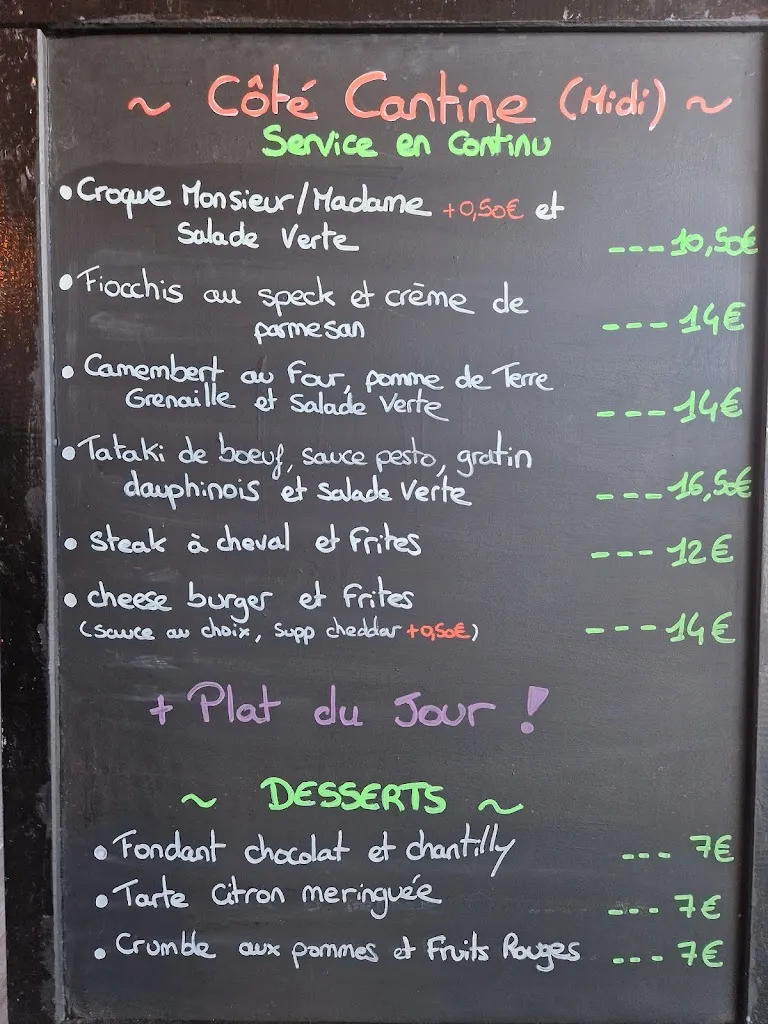 ~ Côté Cantine (Midi) ~
Service en Continu
• Croque Monsieur/Madame +0,50€ et
Salade Verte --- 10,50€
• Fiocchis au speck et crème de
parmesan --- 14€
• Camembert au Four, pomme de Terre
Grenaille et Salade Verte --- 14€
• Tataki de boeuf, sauce pesto, gratin
dauphinois et Salade Verte --- 16,50€
• Steak à cheval et Frites --- 12€
• cheese burger et Frites
(Sauce au choix, Supp cheddar +0,50€) --- 14€
+ Plat du Jour !
~ DESSERTS ~
• Fondant chocolat et chantilly --- 7€
• Tarte Citron meringuée --- 7€
• Crumble aux pommes et Fruits Rouges --- 7€